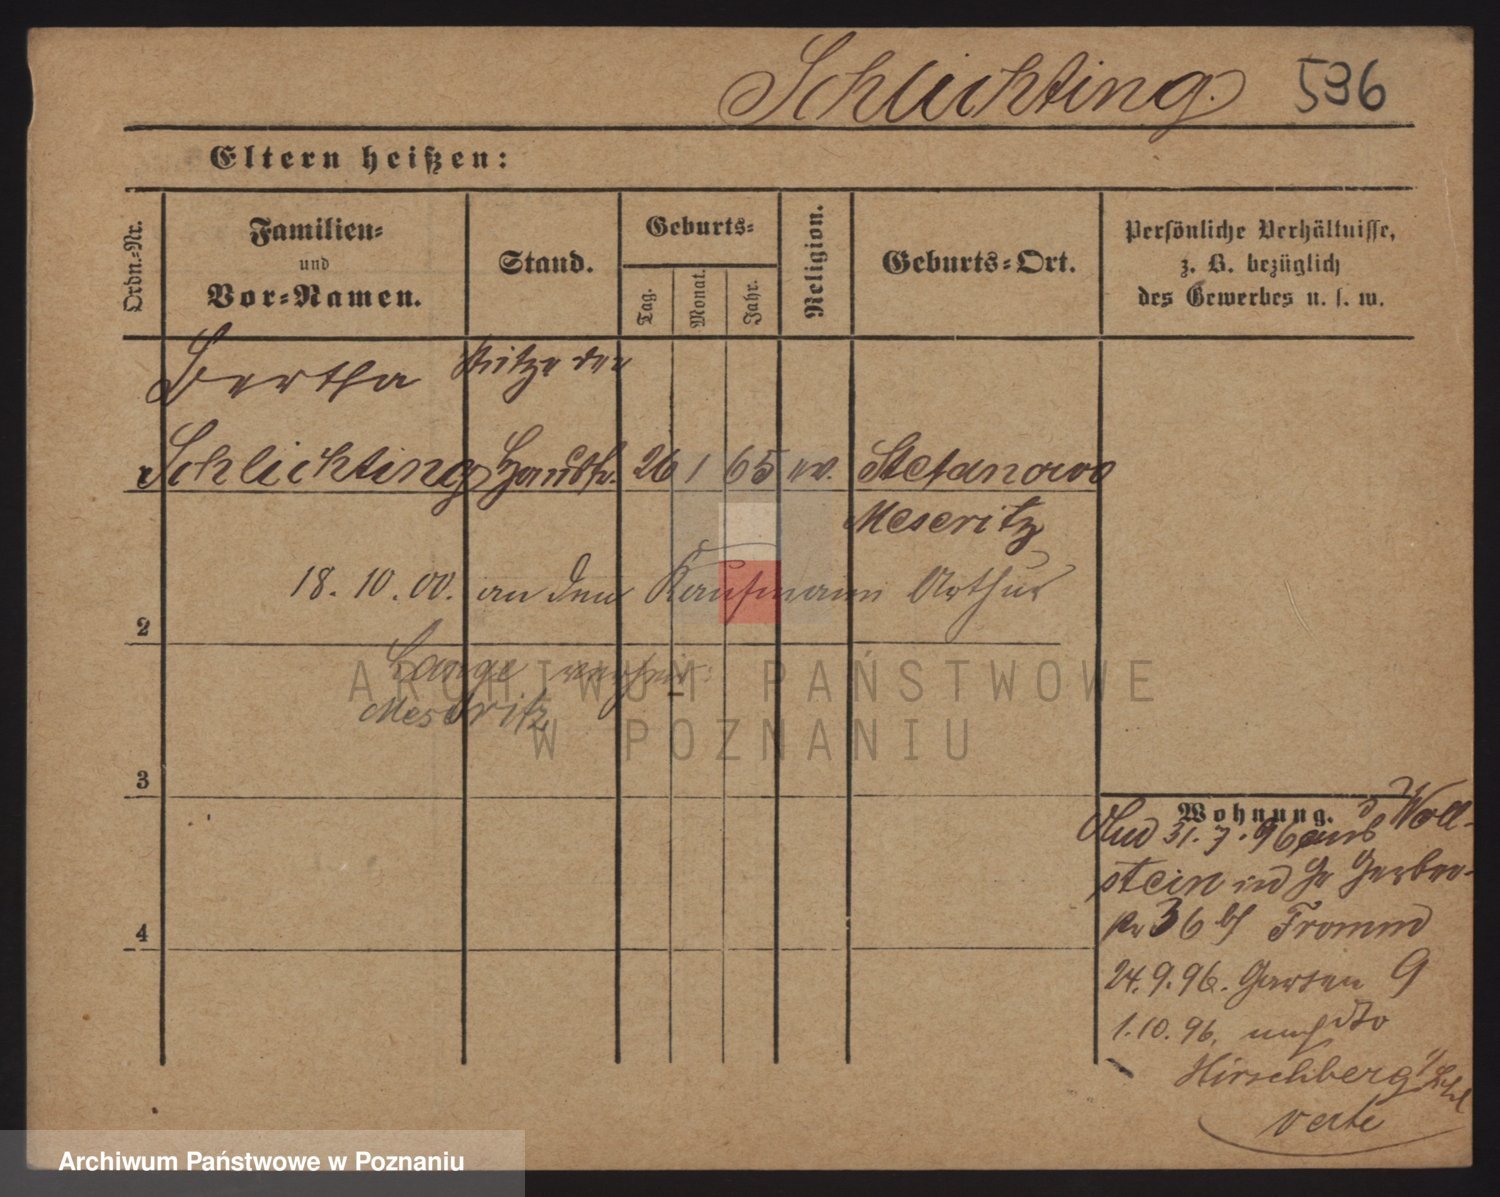 Schlichting. 536
Eltern heißen:
Ordn.-Nr.
Familien-
und
Vor-Namen.
Stand.
Geburts-
Tag.
Monat.
Jahr.
Religion.
Geburts-Ort.
Persönliche Verhältnisse,
z. B. bezüglich
des Gewerbes u. s. w.
Bertha Stütze der
1 Schlichting Hausfr. 26 1 65 ev. Stefanowo
Meseritz
18. 10. 00. an den Kaufmann Arthur
2
Lange verheir.
Meseritz
3
4
Wohnung.
31. 7. 96 aus Woll-
stein Gr Gerber-
str 36 bei Fromm
24. 9. 96. Garten 9
1. 10. 96. nach
Hirschberg i/Schl
verte
ARCHIWUM PAŃSTWOWE
W POZNANIU
Archiwum Państwowe w Poznaniu